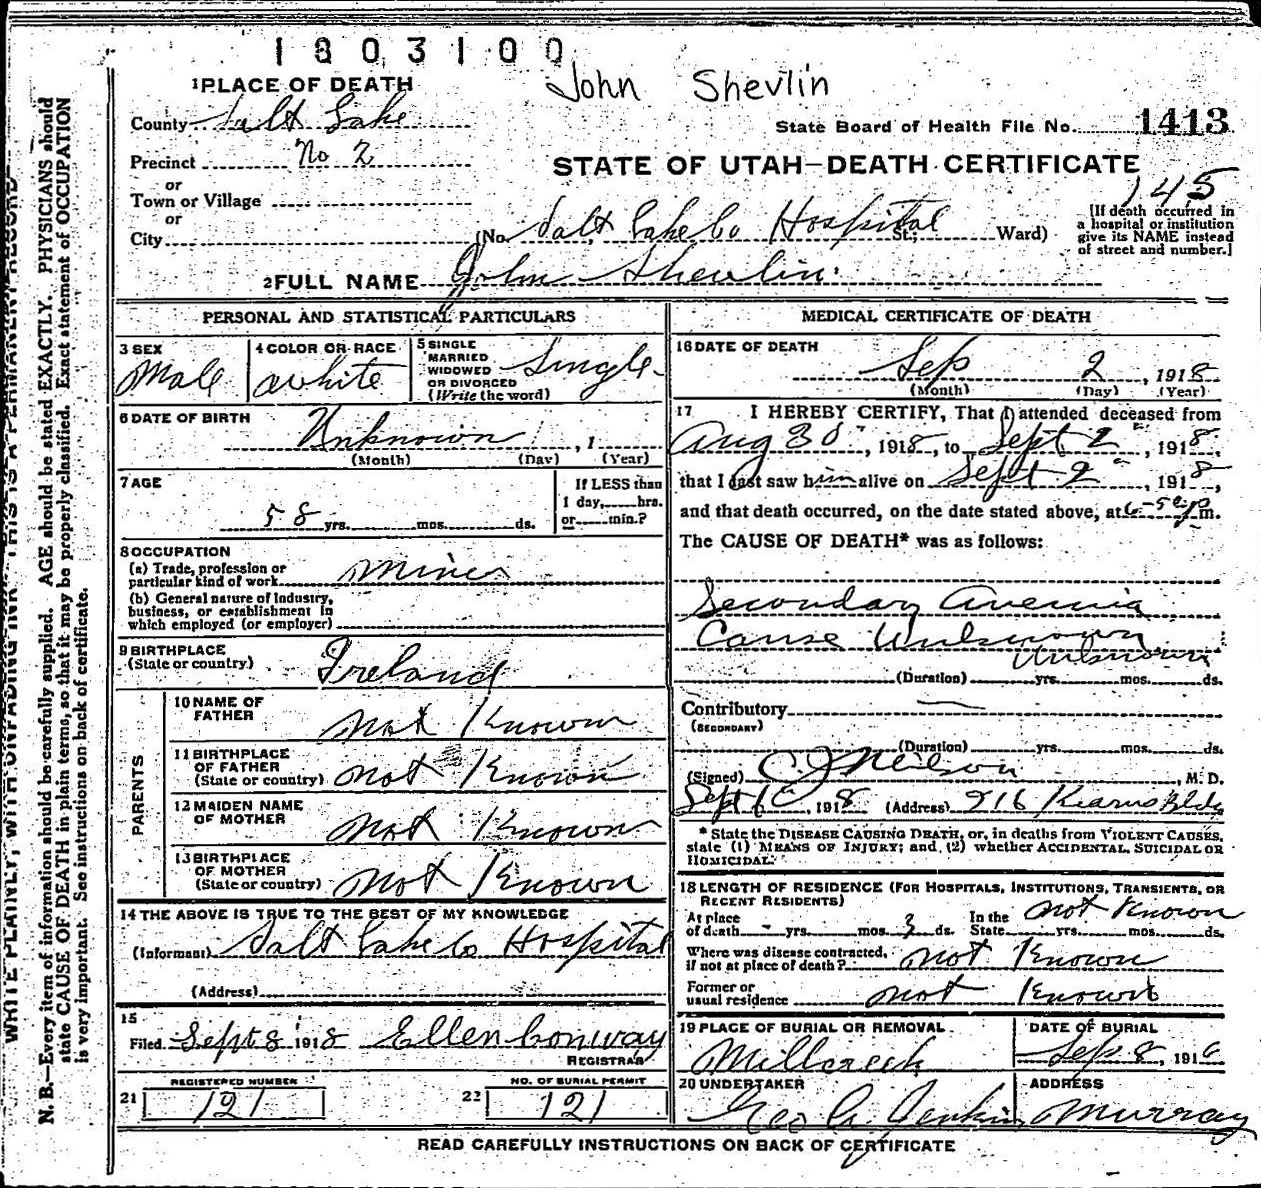 1803100
John Shevlin
1 PLACE OF DEATH
County Salt Lake
State Board of Health File No. 1413
Precinct No 2
STATE OF UTAH—DEATH CERTIFICATE
or
Town or Village
145
or
City (No. Salt Lake Co Hospital St.; Ward)
[If death occurred in
a hospital or institution
give its NAME instead
of street and number.]
2 FULL NAME John Shevlin
PERSONAL AND STATISTICAL PARTICULARS
3 SEX
Male
4 COLOR OR RACE
White
5 SINGLE
MARRIED
WIDOWED
OR DIVORCED
(Write the word)
Single
6 DATE OF BIRTH
Unknown , 1
(Month) (Day) (Year)
7 AGE
58 yrs. mos. ds.
If LESS than
1 day, hrs.
or min.?
8 OCCUPATION
(a) Trade, profession or
particular kind of work Miner
(b) General nature of industry,
business, or establishment in
which employed (or employer)
9 BIRTHPLACE
(State or country) Ireland
PARENTS
10 NAME OF
FATHER Not Known
11 BIRTHPLACE
OF FATHER
(State or country) Not Known
12 MAIDEN NAME
OF MOTHER Not Known
13 BIRTHPLACE
OF MOTHER
(State or country) Not Known
14 THE ABOVE IS TRUE TO THE BEST OF MY KNOWLEDGE
(Informant) Salt Lake Co Hospital
(Address)
15
Filed Sept 8 1918 Ellen Conway
REGISTRAR
REGISTERED NUMBER
21 121
NO. OF BURIAL PERMIT
22 121
MEDICAL CERTIFICATE OF DEATH
16 DATE OF DEATH
Sep 2 , 1918
(Month) (Day) (Year)
17 I HEREBY CERTIFY, That I attended deceased from
Aug 30 , 1918, to Sept 2 , 1918,
that I last saw him alive on Sept 2 , 1918,
and that death occurred, on the date stated above, at 6-50 p m.
The CAUSE OF DEATH* was as follows:
Secondary Anemia
Cause Unknown
Unknown
(Duration) yrs. mos. ds.
Contributory —
(SECONDARY)
(Duration) yrs. mos. ds.
(Signed) C J Neilson , M. D.
Sept , 1918 (Address) 916 Kearns Bldg
* State the DISEASE CAUSING DEATH, or, in deaths from VIOLENT CAUSES,
state (1) MEANS OF INJURY; and (2) whether ACCIDENTAL, SUICIDAL OR
HOMICIDAL.
18 LENGTH OF RESIDENCE (FOR HOSPITALS, INSTITUTIONS, TRANSIENTS, OR
RECENT RESIDENTS)
At place
of death - yrs. mos. 3 ds.
In the
State yrs. mos. ds. Not Known
Where was disease contracted,
if not at place of death? Not Known
Former or
usual residence Not Known
19 PLACE OF BURIAL OR REMOVAL
Millcreek
DATE OF BURIAL
Sep 8, 1916
20 UNDERTAKER
Geo A. Jenkins
ADDRESS
Murray
READ CAREFULLY INSTRUCTIONS ON BACK OF CERTIFICATE
WRITE PLAINLY, WITH UNFADING INK—THIS IS A PERMANENT RECORD
N. B.—Every item of information should be carefully supplied. AGE should be stated EXACTLY. PHYSICIANS should
state CAUSE OF DEATH in plain terms, so that it may be properly classified. Exact statement of OCCUPATION
is very important. See instructions on back of certificate.